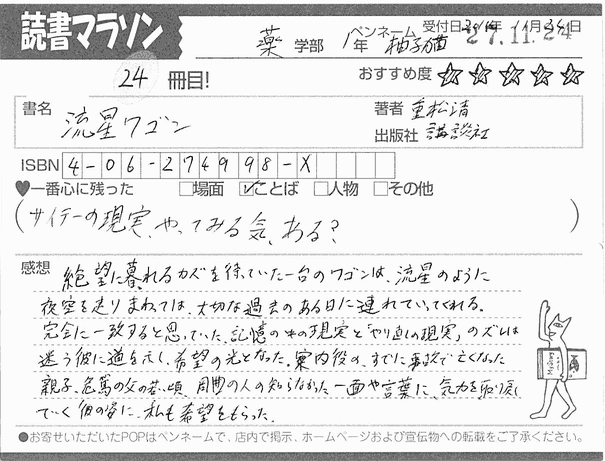 読書マラソン
薬 学部 1年 ペンネーム 柚子猫 受付日 年 11月24日
27.11.24
24 冊目!
おすすめ度 ☆☆☆☆☆
書名 流星ワゴン
著者 重松清
出版社 講談社
ISBN 4-06-274998-X
♥一番心に残った □場面 ☑ことば □人物 □その他
(サイテーの現実、やってみる気、ある?)
感想 絶望に暮れるカズを待っていた一台のワゴンは、流星のように
夜空を走りまわっては、大切な過去のある日に連れていってくれる。
完全に一致すると思っていた、記憶の中の現実と「やり直しの現実」のズレは
迷う彼に道を示し、希望の光となった。案内役の、すでに事故で亡くなった
親子、危篤の父の若い頃、周囲の人の知らなかった一面や言葉に、気力を取り戻し
ていく彼の姿に、私も希望をもらった。
●お寄せいただいたPOPはペンネームで、店内で掲示、ホームページおよび宣伝物への転載をご了承ください。